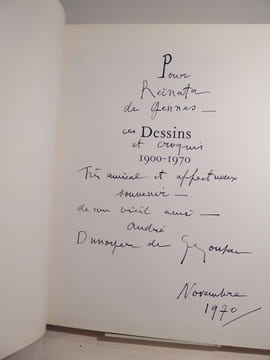 Pour
Reinata
de Gennes —
ces Dessins
et croquis
1900-1970
Très amical et affectueux
souvenir —
de son vieil ami —
André
Dunoyer de Segonzac
Novembre
1970